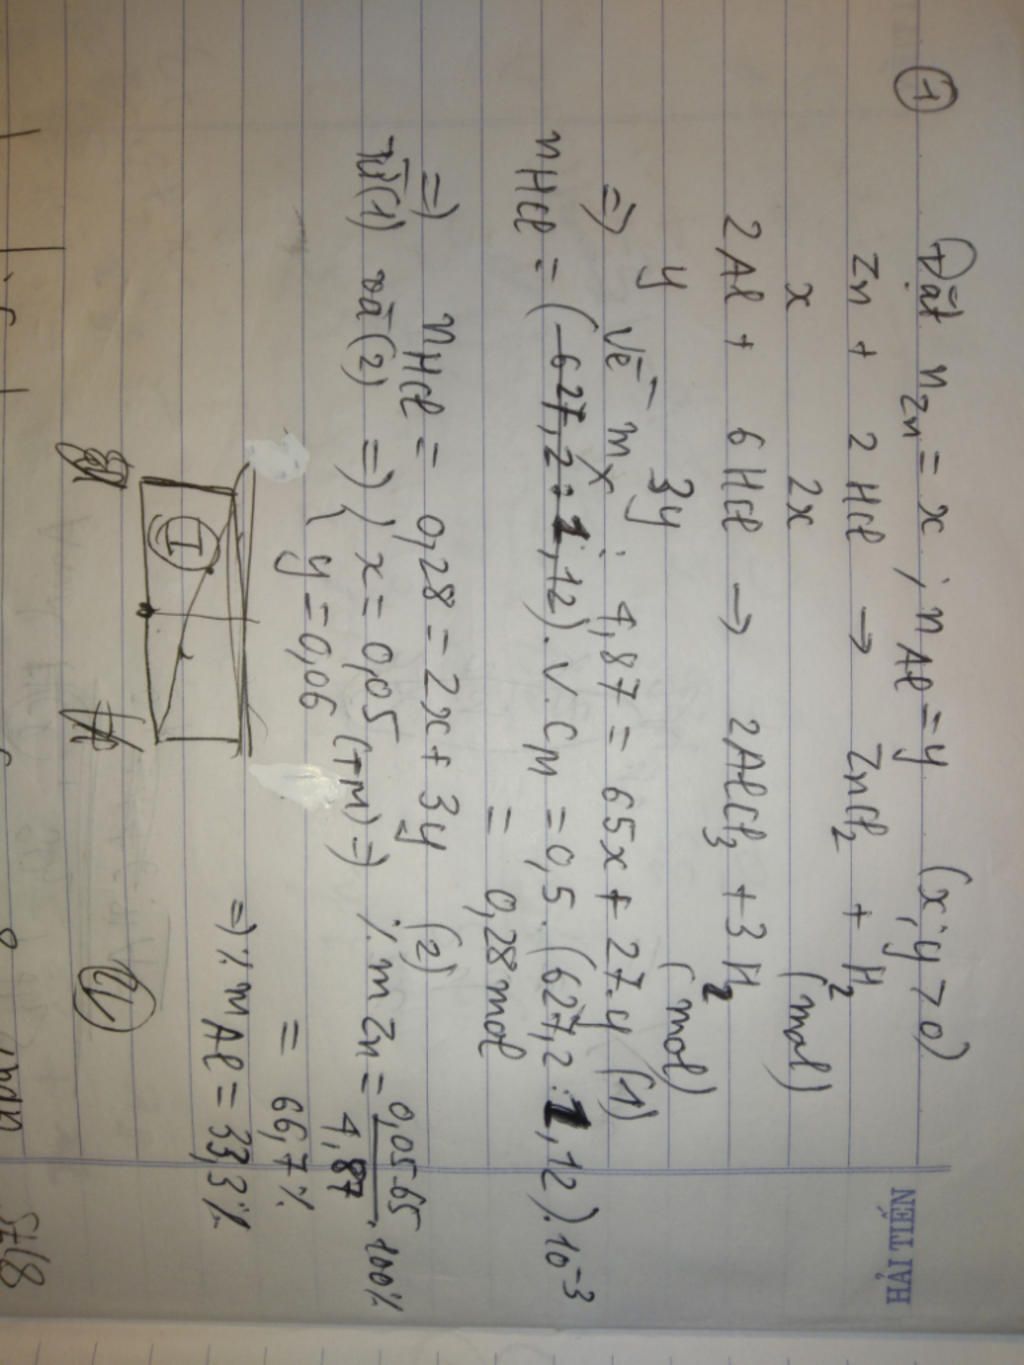 ①
Đặt nZn = x ; nAl = y (x; y > 0)
Zn + 2 HCl → ZnCl2 + H2
x 2x (mol)
2Al + 6 HCl → 2AlCl3 + 3 H2
y 3y (mol)
=> Vẽ mx : 4,87 = 65x + 27.y (1)
nHCl = (627,2 : 1,12). V. CM = 0,5. (627,2 : 1,12).10-3
= 0,28 mol
=> nHCl = 0,28 = 2x + 3y (2)
từ (1) và (2) => { x = 0,05 (TM) => % m Zn = 0,05.65 / 4,87 . 100%
y = 0,06 = 66,7 %
=> % m Al = 33,3%
I
HẢI TIẾN